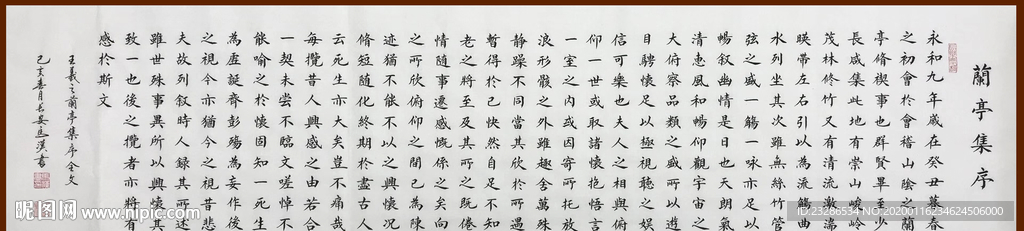 蘭亭集序
永和九年歲在癸丑暮春
之初會於會稽山陰之蘭
亭脩禊事也群賢畢至少
長咸集此地有崇山峻嶺
茂林修竹又有清流激湍
暎帶左右引以為流觴曲
水列坐其次雖無絲竹管
弦之盛一觴一詠亦足以
暢叙幽情是日也天朗氣
清惠風和暢仰觀宇宙之
大俯察品類之盛所以遊
目騁懷足以極視聽之娛
信可樂也夫人之相與俯
仰一世或取諸懷抱悟言
一室之内或因寄所托放
浪形骸之外雖趣舍萬殊
靜躁不同當其欣於所遇
暫得於己快然自足不知
老之將至及其所之既倦
情隨事遷感慨係之矣向
之所欣俯仰之間已為陳
迹猶不能不以之興懷況
脩短隨化終期於盡古人
云死生亦大矣豈不痛哉
每攬昔人興感之由若合
一契未嘗不臨文嗟悼不
能喻之於懷固知一死生
為虛誕齊彭殤為妄作後
之視今亦猶今之視昔悲
夫故列叙時人錄其所述
雖世殊事異所以興懷其
致一也後之攬者亦將有
感於斯文
王羲之蘭亭集序全文
己亥春月書
昵图网 www.nipic.com
ID:23286534 NO:20200116234624506000